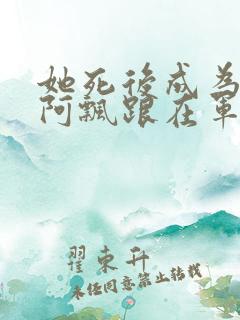 她死後成為
阿飄跟在軍
翟東升
未经同意禁止转载